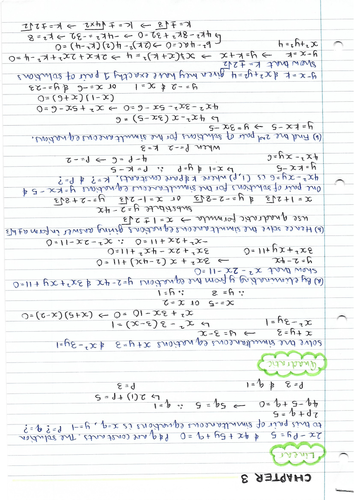 CHAPTER 3
Linear
2x - Py = 5 & 4x + 5y + q = 0 P & q are constants. The solution
to this pair of simultaneous equations is x = q, y = -1 P = ? q = ?
2q + P = 5
4q - 5 + q = 0 → 5q = 5 ∴ q = 1
↳ 2(1) + P = 5
P = 3 & q = 1 P = 3
Quadratic
Solve the simultaneous equations x + y = 3 & x² - 3y = 1
x + y = 3 → y = 3 - x
x² - 3y = 1 ↳ x² - 3(3-x) = 1
x² + 3x - 10 = 0 → (x+5)(x-2) = 0
x = -5 or x = 2
∴ y = 8 ∴ y = 1
(a) By eliminating y from the equations y = 2 - 4x & 3x² + xy + 11 = 0
show that x² - 2x - 11 = 0
y = 2 - 4x 3x² + x(2-4x) + 11 = 0
3x² + xy + 11 = 0 3x² + 2x - 4x² + 11 = 0
-x² + 2x + 11 = 0 ∴ x² - 2x - 11 = 0
(b) Hence solve the simultaneous equations giving answer in form a±b√3
use quadratic formula → x = 1 ± 2√3
substitute y = 2 - 4x
x = 1 + 2√3 & y = -2 - 8√3 or x = 1 - 2√3 y = -2 + 8√3
One pair of solutions for the simultaneous equations y = kx - 5 &
4x² - xy = 6 is (1, p) where k & p are constants. k = ? & p = ?
y = kx - 5 ↳ x = 1 & y = p ∴ p = k - 5
4x² - xy = 6 4 - p = 6 → p = -2
k = 3 when p = -2
(b) Find the 2nd pair of solutions for the simultaneous equations.
y = kx - 5 → y = 3x - 5
↳ 4x² - x(3x - 5) = 6
4x² - 3x² + 5x - 6 = 0 → x² + 5x - 6 = 0
(x-1)(x+6) = 0
y = -2 & x = 1 or x = -6 & y = -23
y - x = k & x² + y² = 4 given they have exactly 1 pair of solutions
Show that k = ±2√2
y - x = k → y = k + x → x² + (x+k)² = 4 → 2x² + 2xk + k² - 4 = 0
x² + y² = 4 b² - 4ac = 0 → (2k)² - 4(2)(k² - 4) = 0
4k² - 8k² + 32 = 0 → -4k² = -32 → k² = 8
k = ±√8 → k = ±√4×2 → k = ±2√2